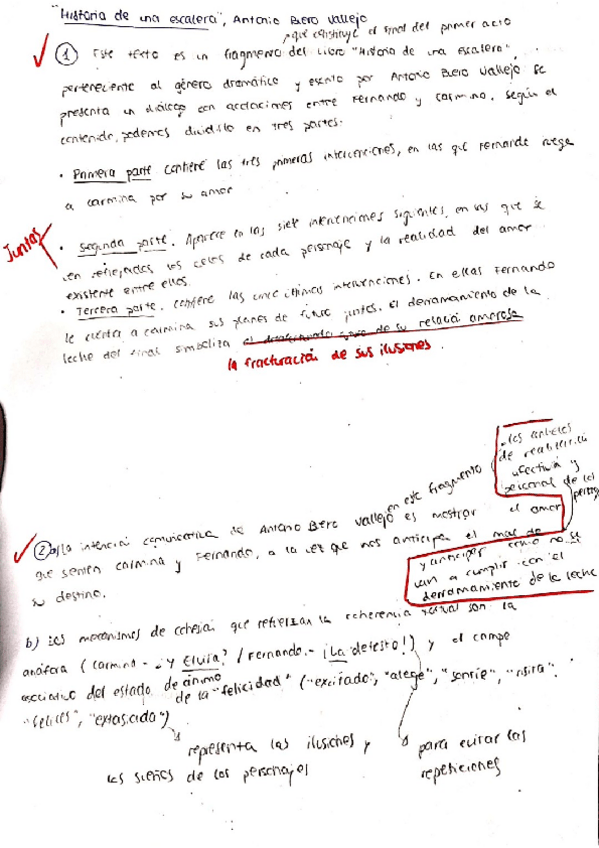 "Historia de una escalera", Antonio Buero Vallejo
, que constituye el final del primer acto
① Este texto es un fragmento del libro "Historia de una escalera",
perteneciente al género dramático y escrito por Antonio Buero Vallejo. Se
presenta un diálogo con acotaciones entre Fernando y Carmina. Según el
contenido, podemos dividirlo en tres partes:
• Primera parte contiene las tres primeras intervenciones, en las que Fernando ruega
a Carmina por su amor
Juntas
• Segunda parte. Aparece en las siete intervenciones siguientes, en las que se
ven reflejados los celos de cada personaje y la realidad del amor
existente entre ellos.
• Tercera parte. Contiene las once últimas intervenciones. En ellas Fernando
le cuenta a Carmina sus planes de futuro juntos. El derramamiento de la
leche del final simboliza de su relación amorosa
la fracturación de sus ilusiones.
los anhelos
de realización
afectiva y
personal de los
en este fragmento
② a) La intención comunicativa de Antonio Buero Vallejo es mostrar el amor
que sienten Carmina y Fernando, a la vez que nos anticipa el mal de
su destino.
y anticipar como no se
van a cumplir con el
derramamiento de la leche
b) Los mecanismos de cohesión que refuerzan la coherencia textual son la
anáfora (Carmina.- ¿Y Elvira? / Fernando.- ¡La detesto!) y el campo
asociativo del estado de ánimo de la "felicidad" ("excitado", "alegre", "sonríe", "risita".
"felices", "extasiada")
representa las ilusiones y
los sueños de los personajes
para evitar las
repeticiones